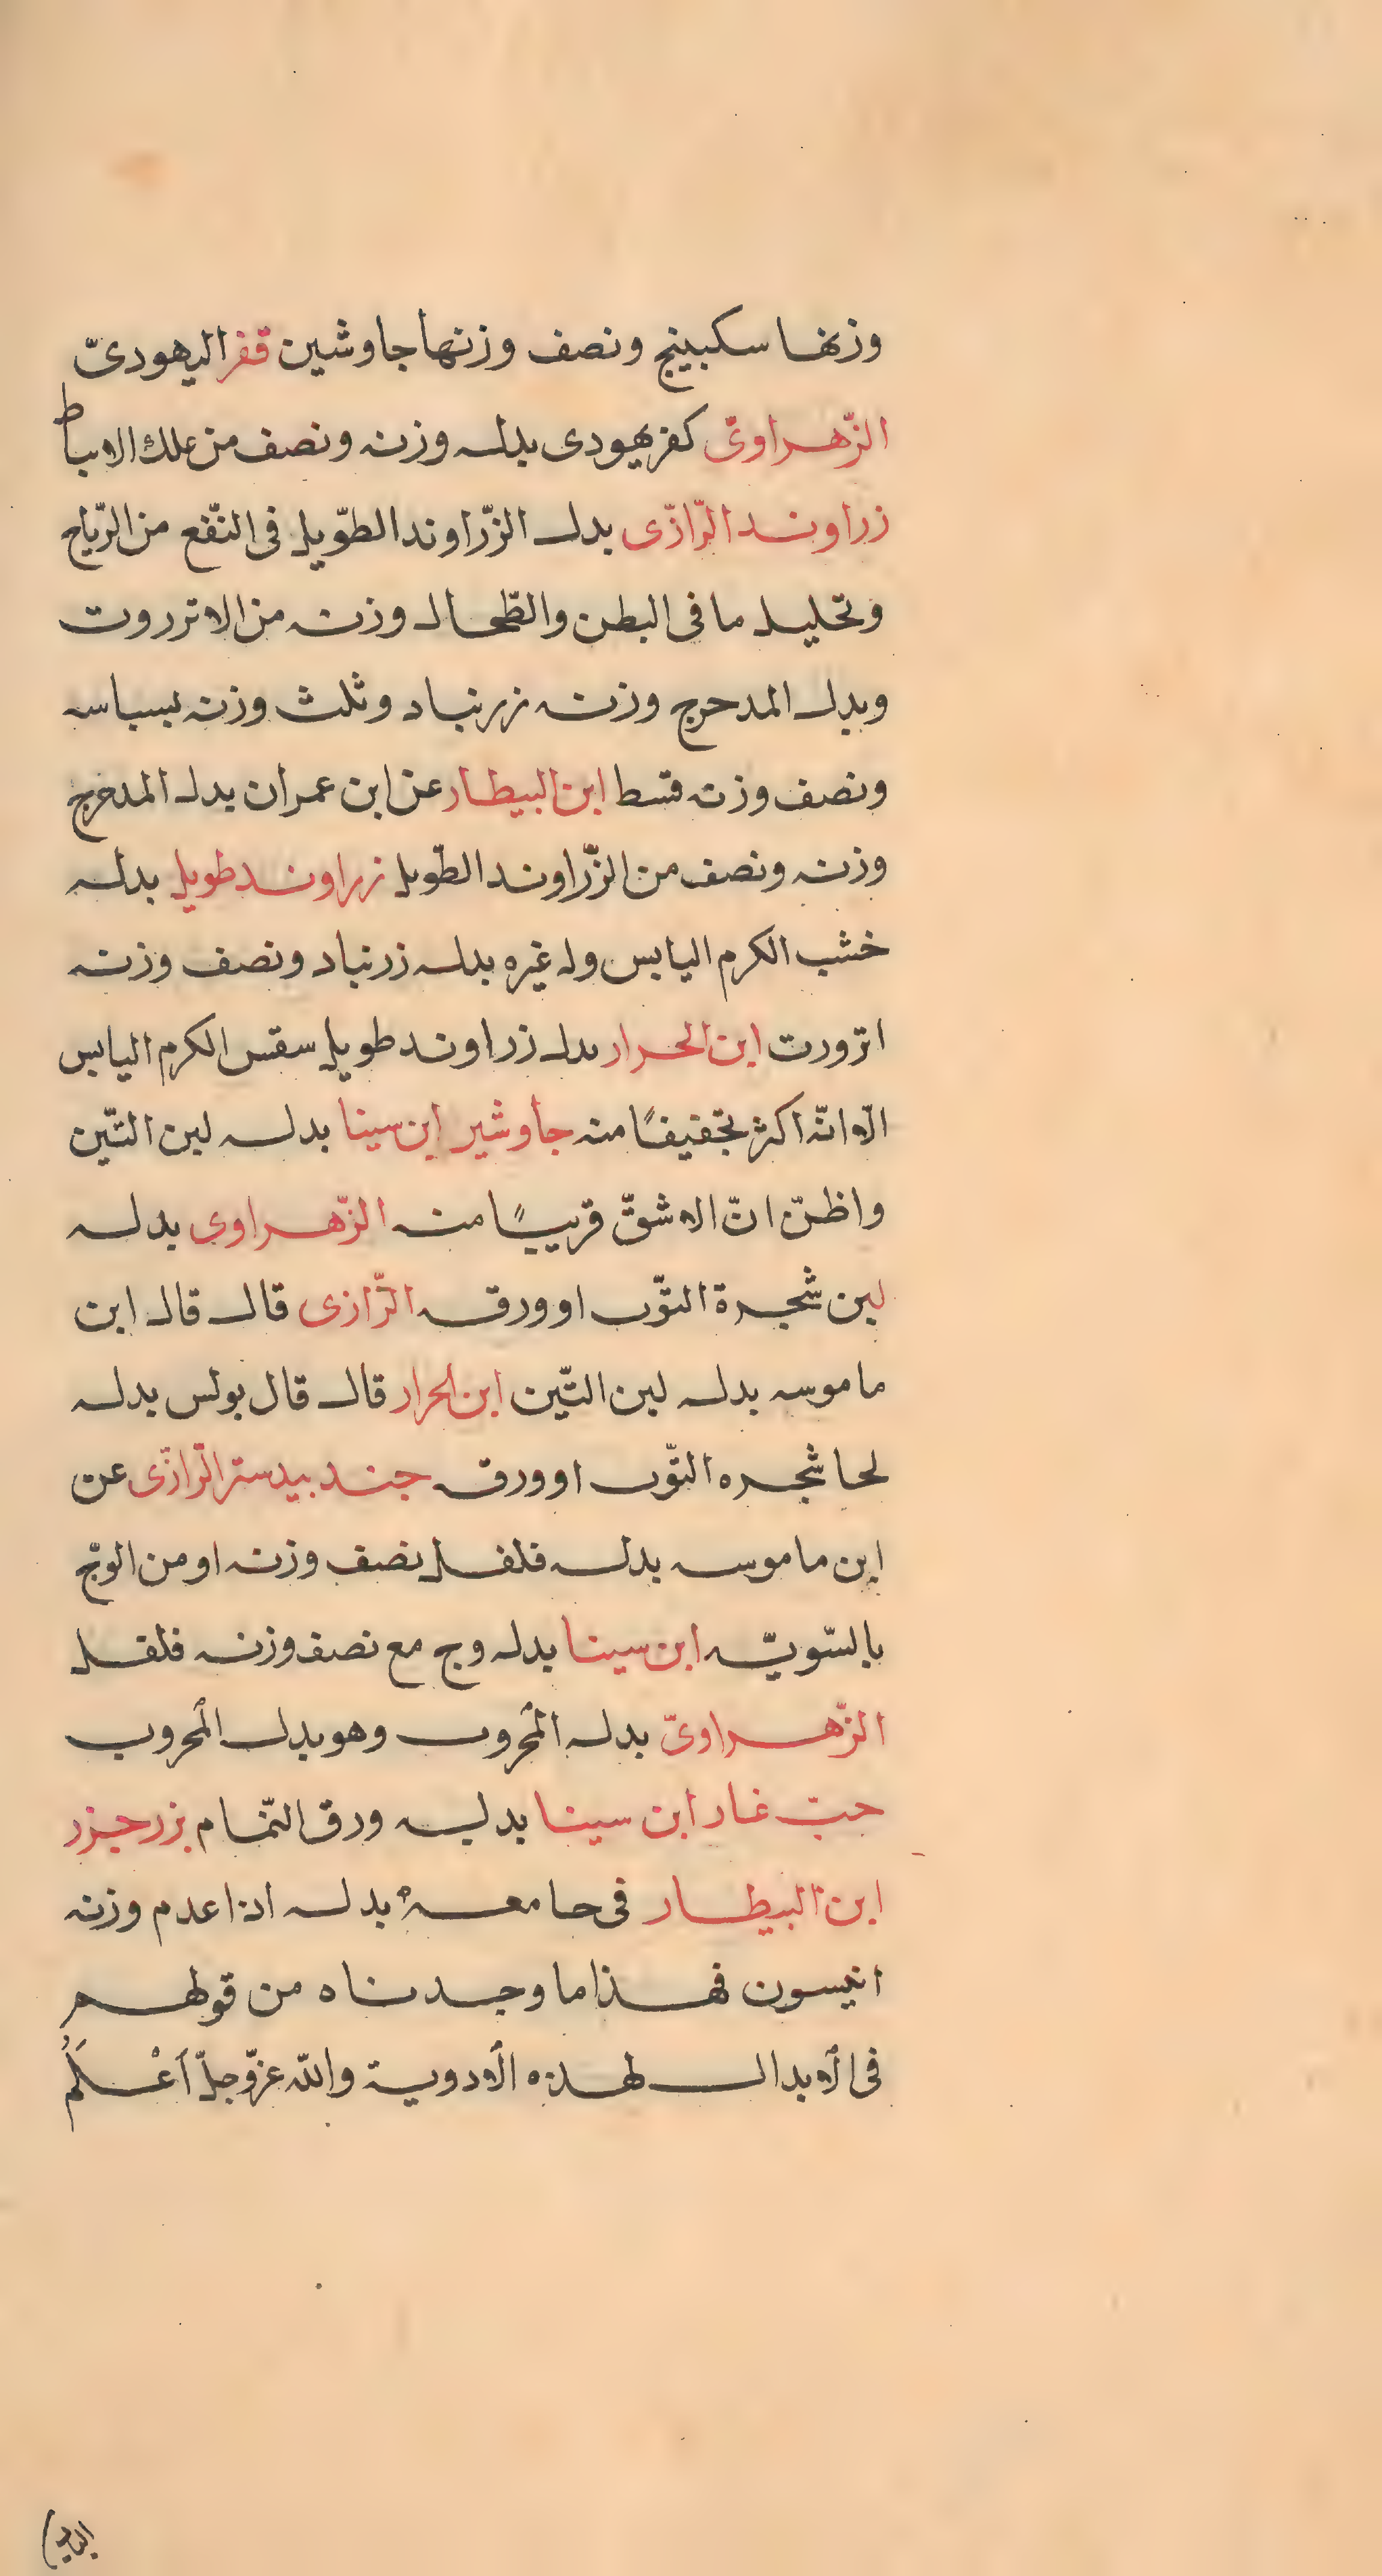 وزنها سكبينج ونصف وزنها جاوشين قفر اليهودىّ
الزّهراوىّ كفر يهودى بدله وزنه ونصف من علك الانباط
زراوند الرّازّى بدل الزّراوند الطوّيل فى النّفع من الرّياح
وتحليل ما فى البطن والطّحال وزنه من الاتزروت
وبدل المدحرج وزنه زرنباد وثلث وزنه بسباسه
ونصف وزنه قسط ابن البيطار عن ابن عمران بدل المدحرج
وزنه ونصف من الزّراوند الطّويل زراوند طويل بدله
خشب الكرم اليابس وله غيره بدله زرنباد ونصف وزنه
اتزورت ابن الحرار بدل زراوند طويل سقس الكرم اليابس
الّا انّه اكثر تجفيفًا منه جاوشير ابن سينا بدله لبن التّين
واظنّ انّ الاشقّ قريبًا منه الزّهراوى بدله
لبن شجرة التوّت او ورقه الرّازى قال قال ابن
ماموسه بدله لبن التّين ابن الحرار قال قال بولس بدله
لحا شجره التوّت او ورقه جند بيدستر الرّازّى عن
ابن ماموسه بدله فلفل نصف وزنه او من الوجّ
بالسّويّه ابن سينا بدله وج مع نصف وزنه فلفل
الزّهراوىّ بدله المحروث وهو بدل المحروث
حبّ غار ابن سينا بدله ورق النّمام بزر جزر
ابن البيطار فى جامعه بدله اذا عدم وزنه
انيسون فهذا ما وجدناه من قولهم
فى الابدال لهذه الادوية والله عزّ وجلّ أَعْلَمُ